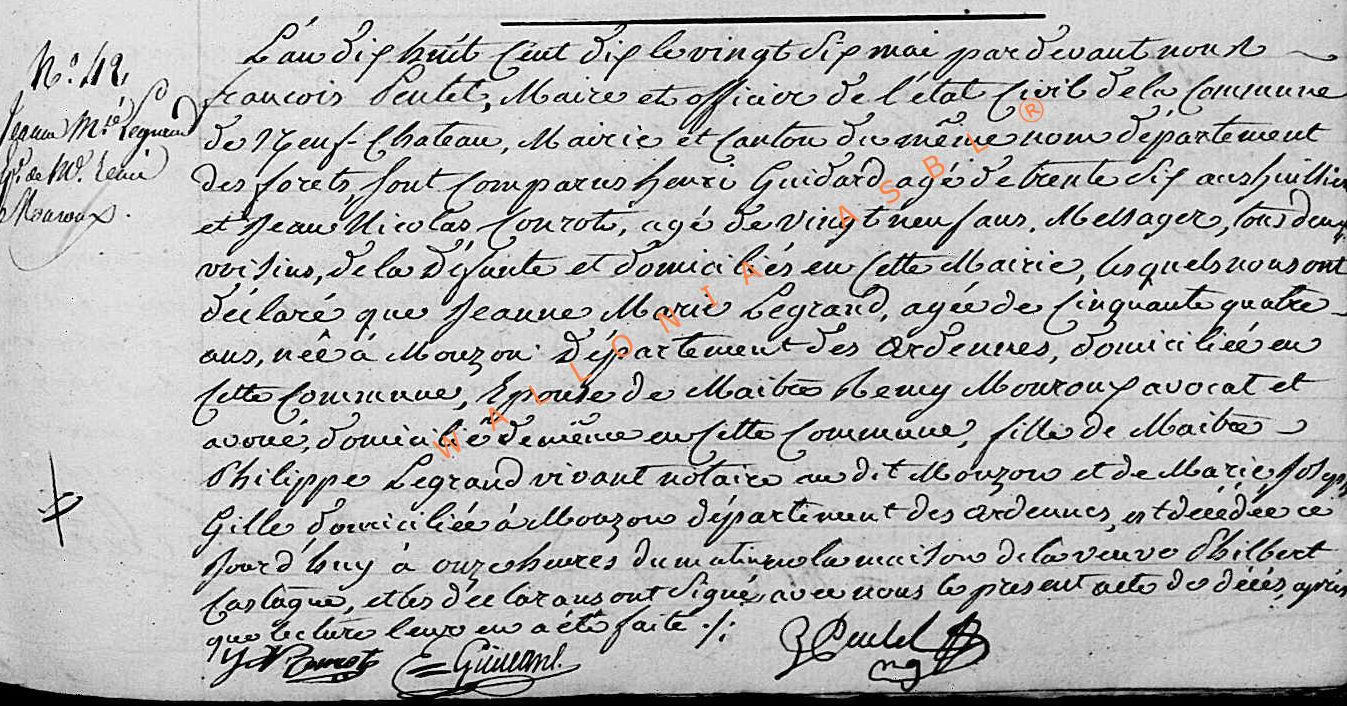 N.° 42.
Jeanne M.ie Legrand
de M.e Remi
Mouroux.
L'an dix huit Cent dix le vingt six mai par devant nous
francois Peutet, Maire et officier de l'état Civil de la Commune
de Neuf-Chateau, Mairie et Canton du même nom département
des forets, sont Comparus henri Guidard agé de trente six ans huissier
et Jean Nicolas Courots, agé de vingt neuf ans, Messager, tous deux
voisins, de la Défunte et domiciliés en Cette Mairie, lesquels nous ont
déclaré que Jeanne Marie Legrand, agée de Cinquante quatre
ans, née à Mouzon Département des Ardennes, domiciliée en
Cette Commune, Epouse de Maitre Remy Mouroux avocat et
avoué, domicilié de même en Cette Commune, fille de Maitre
Philippe Legrand vivant notaire au dit Mouzon et de Marie Joseph
Gille, domiciliée à Mouzon département des Ardennes, est décédée ce
Jourd'huy à onze heures du matin en la maison de la veuve Philbert
Castagne, et les déclarans ont signé avec nous le present acte de décés, après
que lecture leur en a été faite ./.
WALLONIA ASBL ®